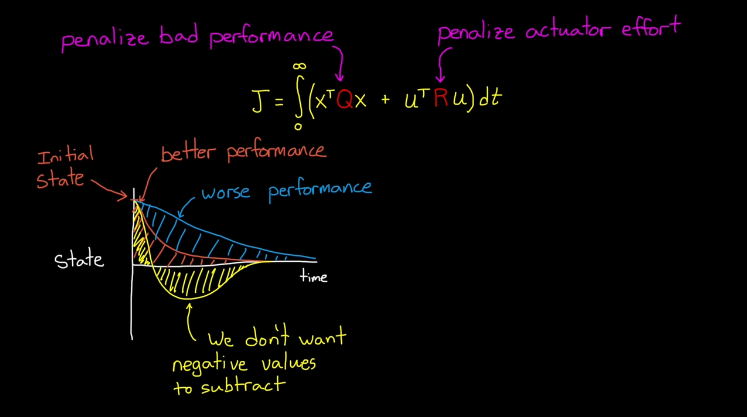 penalize bad performance
penalize actuator effort
J = ∫₀^∞ (xᵀQx + uᵀRu) dt
Initial
State
better performance
worse performance
State
time
We don't want
negative values
to subtract